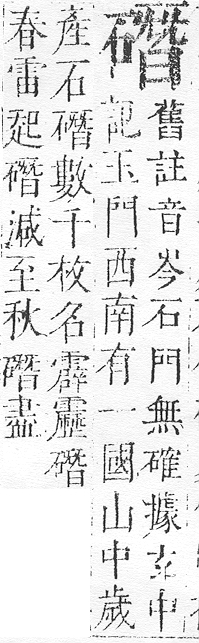 䃡
舊註音岑石門無確據玄中
記玉門西南有一國山中歲
產石䃡數千枚名霹靂䃡
春雷起䃡減至秋䃡盡